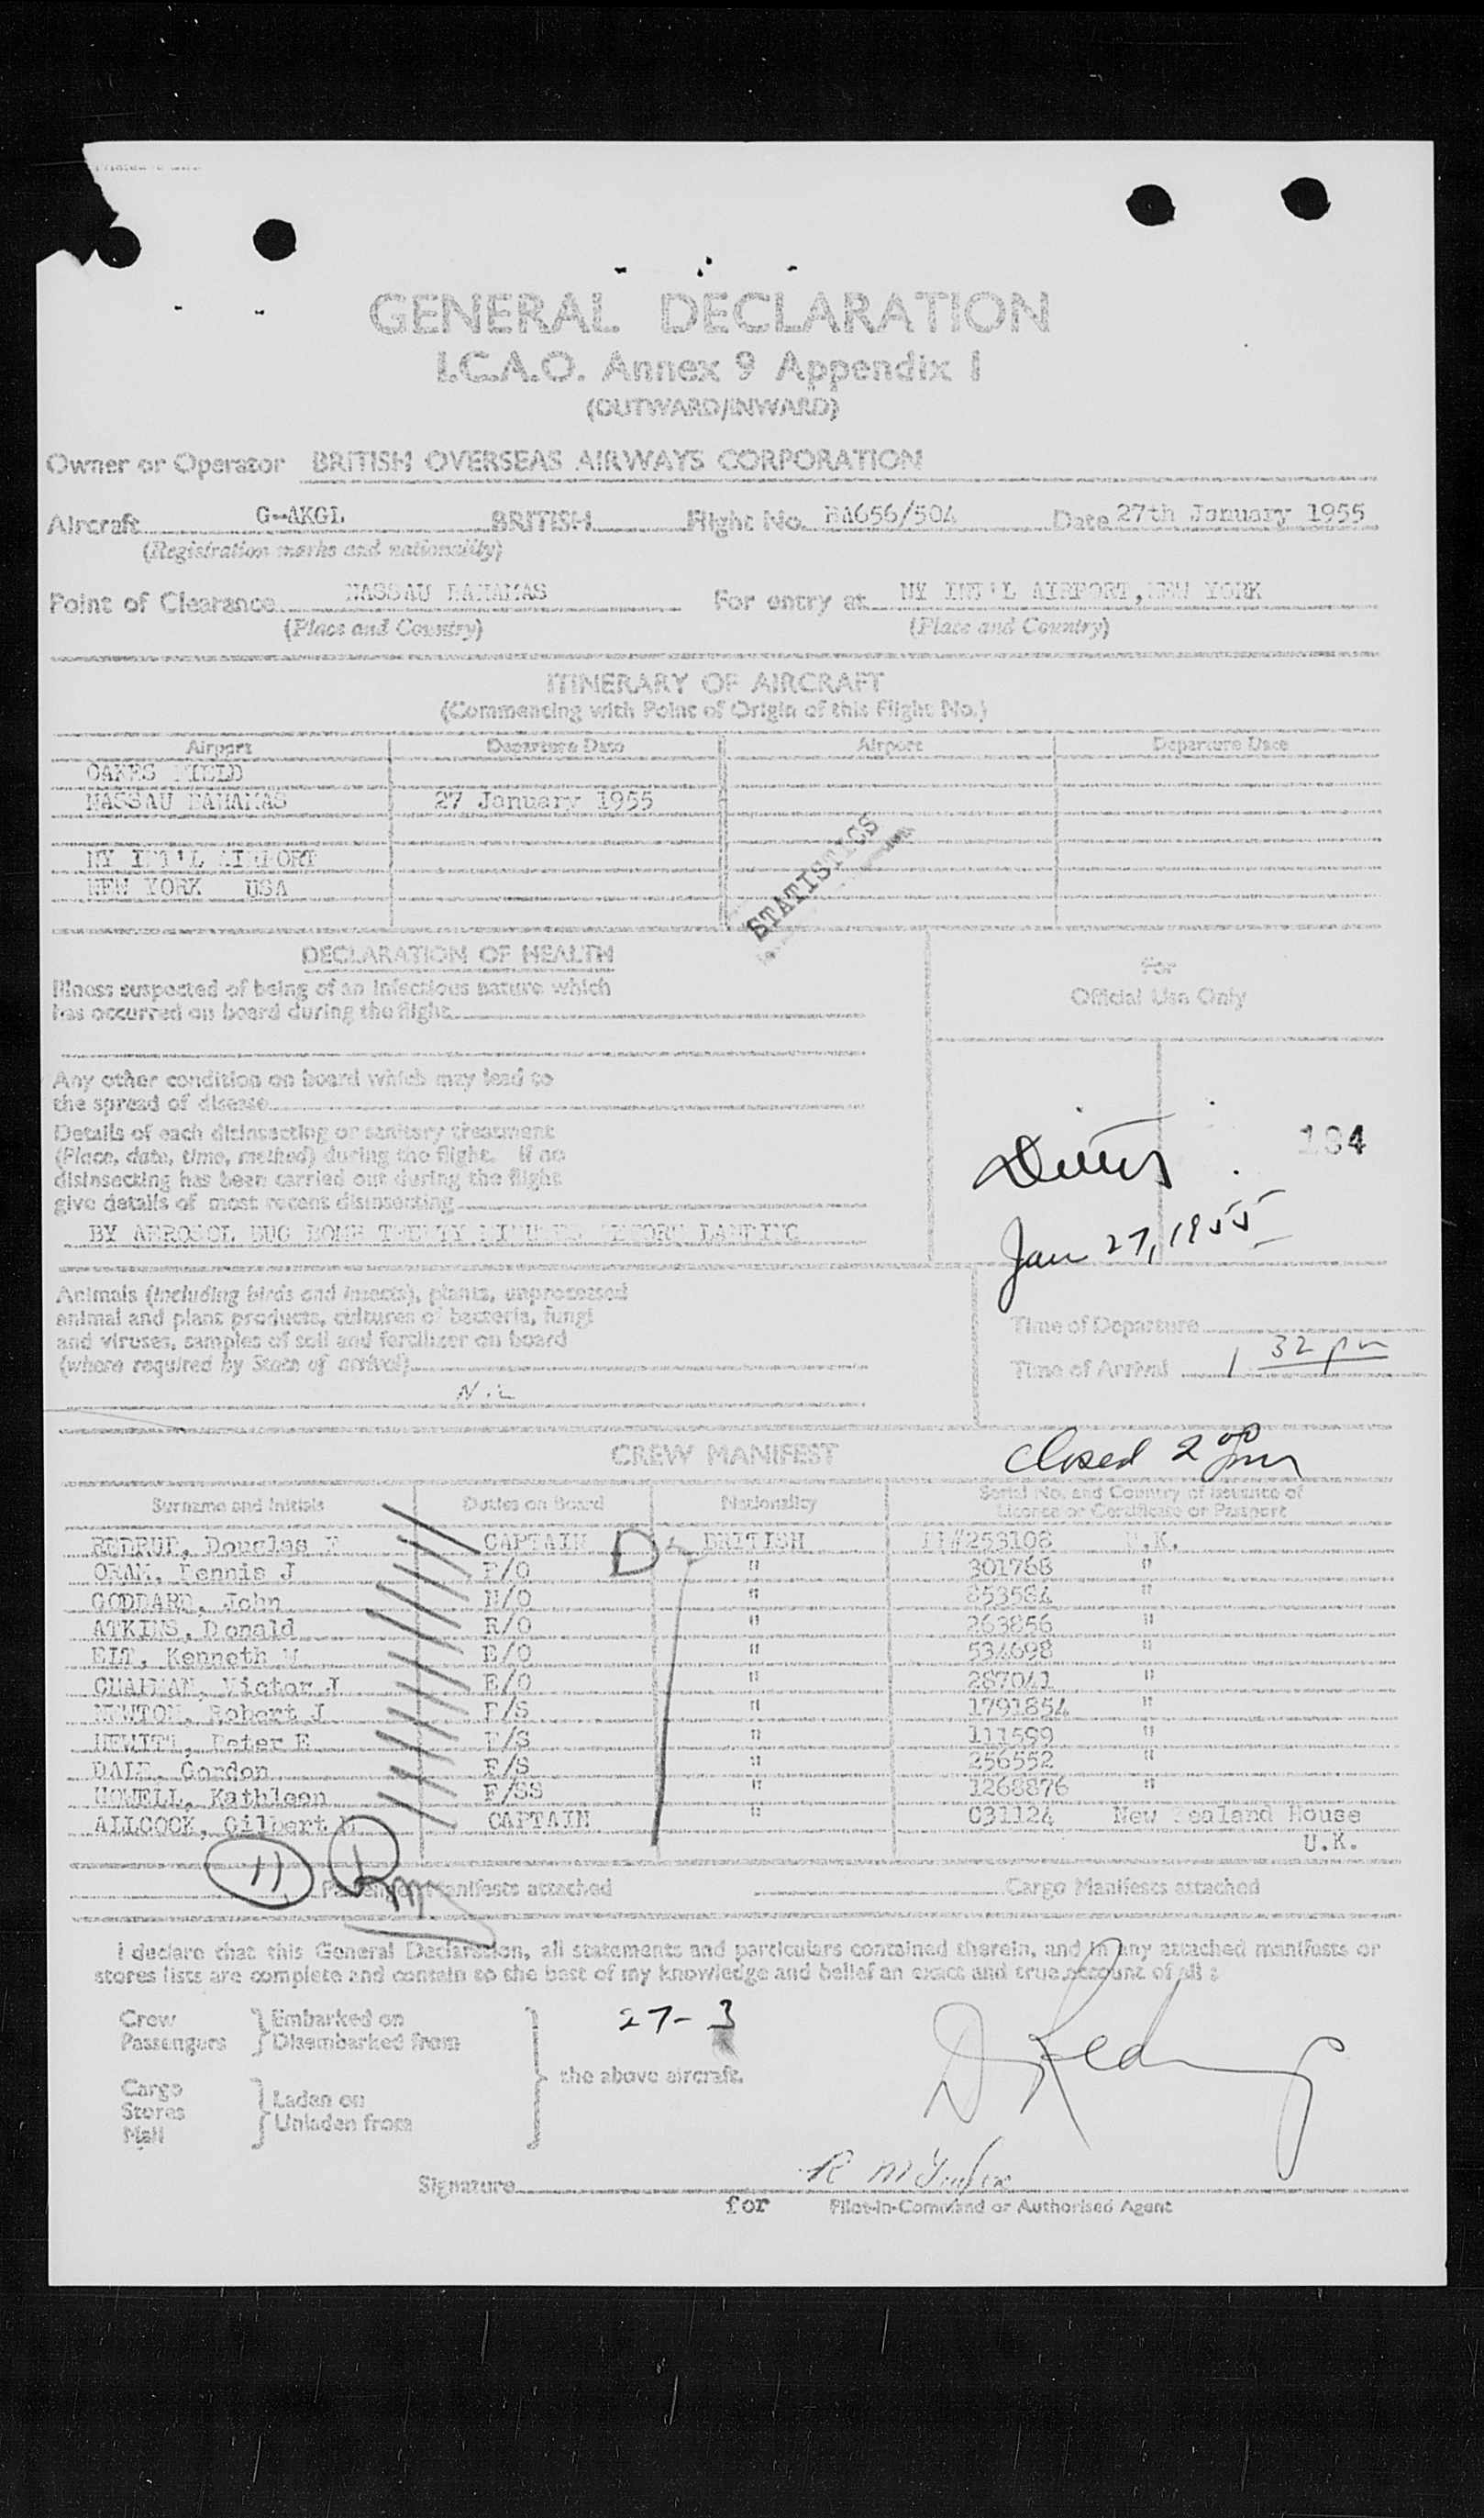 GENERAL DECLARATION
I.C.A.O. Annex 9 Appendix I
(OUTWARD/INWARD)
Owner or Operator BRITISH OVERSEAS AIRWAYS CORPORATION
Aircraft G-AKGL BRITISH Flight No. BA656/504 Date 27th January 1955
(Registration marks and nationality)
Point of Clearance NASSAU BAHAMAS For entry at NY INT'L AIRPORT, NEW YORK
(Place and Country) (Place and Country)
ITINERARY OF AIRCRAFT
(Commencing with Point of Origin of this Flight No.)
Airport Departure Date Airport Departure Date
OAKES FIELD
NASSAU BAHAMAS 27 January 1955
NY INT'L AIRPORT
NEW YORK USA
STATISTICS
DECLARATION OF HEALTH
Illness suspected of being of an infectious nature which
has occurred on board during the flight
Any other condition on board which may lead to
the spread of disease
Details of each disinsecting or sanitary treatment
(Place, date, time, method) during the flight. If no
disinsecting has been carried out during the flight
give details of most recent disinsecting
BY AEROSOL BUG BOMB TWENTY MINUTES BEFORE LANDING
For
Official Use Only
184
Jan 27, 1955
Animals (including birds and insects), plants, unprocessed
animal and plant products, cultures of bacteria, fungi
and viruses, samples of soil and fertilizer on board
(where required by State of arrival)
NIL
Time of Departure
Time of Arrival 1 32 pm
closed 2 00 pm
CREW MANIFEST
Surname and Initials Duties on Board Nationality Serial No. and Country of Issuance of
Licence or Certificate or Passport
REDRUP, Douglas CAPTAIN D BRITISH 253108 U.K.
ORAM, Dennis J F/O " 301768 "
GODDARD, John N/O " 853584 "
ATKINS, Donald R/O " 263856 "
ELT, Kenneth W E/O " 534698 "
CHAPMAN, Victor J E/O " 287041 "
NEWTON, Robert J F/S " 1791854 "
HEWITT, Peter E F/S " 111599 "
DALE, Gordon F/S " 256552 "
HOWELL, Kathleen F/SS " 1268876 "
ALLCOCK, Gilbert CAPTAIN " 031124 New Zealand House
U.K.
11
Passenger Manifests attached Cargo Manifests attached
I declare that this General Declaration, all statements and particulars contained therein, and in any attached manifests or
stores lists are complete and contain to the best of my knowledge and belief an exact and true account of all :
Crew
Passengers
Embarked on
Disembarked from
27-3
the above aircraft.
Cargo
Stores
Mail
Laden on
Unladen from
D Redrup
Signature
for Pilot-in-Command or Authorised Agent